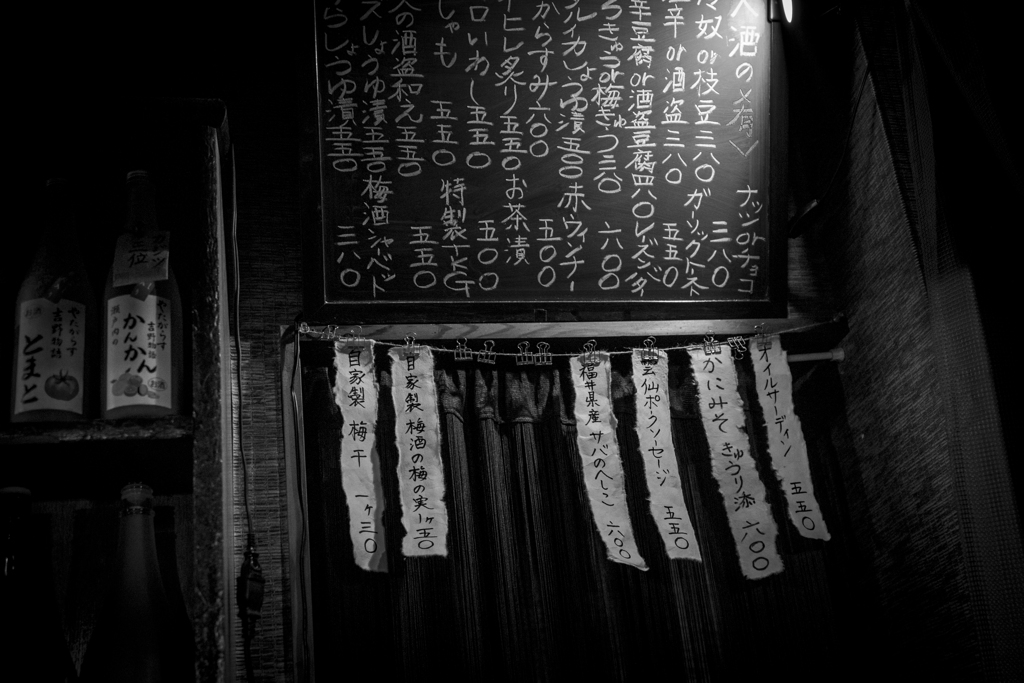 酒の肴
冷奴 or 枝豆 三八〇
辛 or 酒盗 三八〇
辛豆腐 or 酒盗豆腐 四八〇
きゅう or 梅きゅう 三五〇
イカしょうゆ漬 五五〇
からすみ 六〇〇
エイヒレ炙り 五五〇
いわし 五五〇
しゃも 五五〇
の酒盗和え 五五〇
スしょうゆ漬 五五〇
らしょうゆ漬 五五〇
ナッツ or チョコ 三八〇
ガーリックトースト 五五〇
レーズンバター 六〇〇
赤ウィンナー 五〇〇
お茶漬 五〇〇
特製TKG 五五〇
梅酒シャーベット 三八〇
オイルサーディン 五五〇
かにみそ きゅうり添 六〇〇
雲仙ポークソーセージ 五五〇
福井県産 サバのへしこ 六〇〇
自家製 梅酒の梅の実 一ヶ五〇
自家製 梅干 一ヶ三〇
三位
やたがらす
吉野物語
かんかん
お酒
やたがらす
吉野物語
とまと